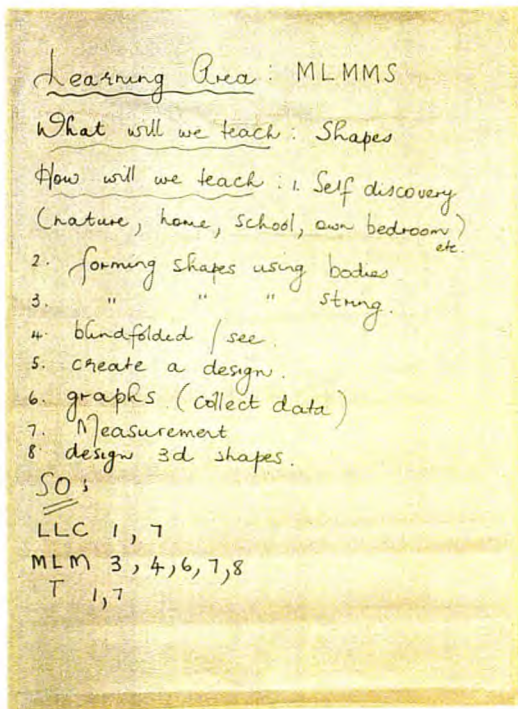 Learning Area : MLMMS
What will we teach : Shapes
How will we teach : 1. Self discovery
(nature, home, school, own bedroom)
etc.
2. forming shapes using bodies.
3. " " " string.
4. blindfolded / see.
5. create a design.
6. graphs. (collect data)
7. Measurement
8 design 3d shapes.
SO :
LLC 1, 7
MLM 3, 4, 6, 7, 8
T 1, 7